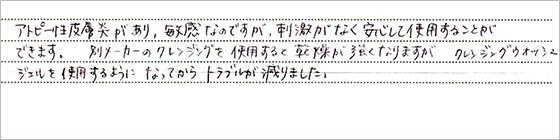 アトピー性皮膚炎があり、敏感なのですが、刺激がなく安心して使用することが
できます。 別メーカーのクレンジングを使用すると乾燥が強くなりますが クレンジングウォッシュ
ジェルを使用するように なってから トラブルが減りました。